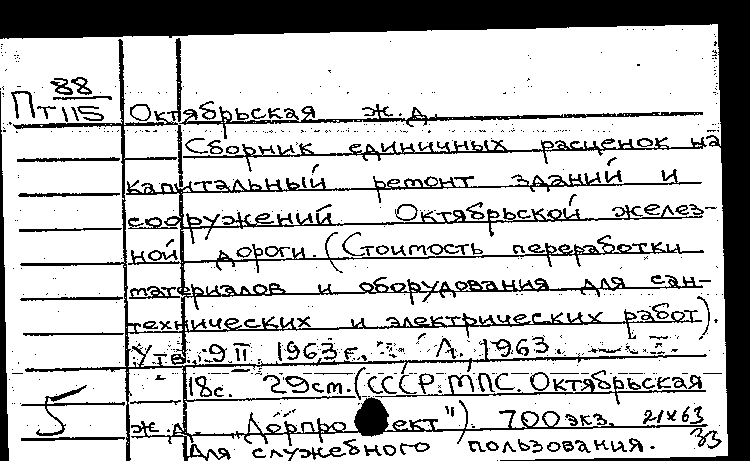 88
Пт115 Октябрьская ж.д.
Сборник единичных расценок на
капитальный ремонт зданий и
сооружений Октябрьской желез-
ной дороги. (Стоимость переработки
материалов и оборудования для сан-
технических и электрических работ).
Утв. 9 II 1963 г. Л., 1963.
18с. 29см. (СССР. МПС. Октябрьская
5 ж.д. "Дорпро ект"). 700 экз. 21×63
Для служебного пользования. 33